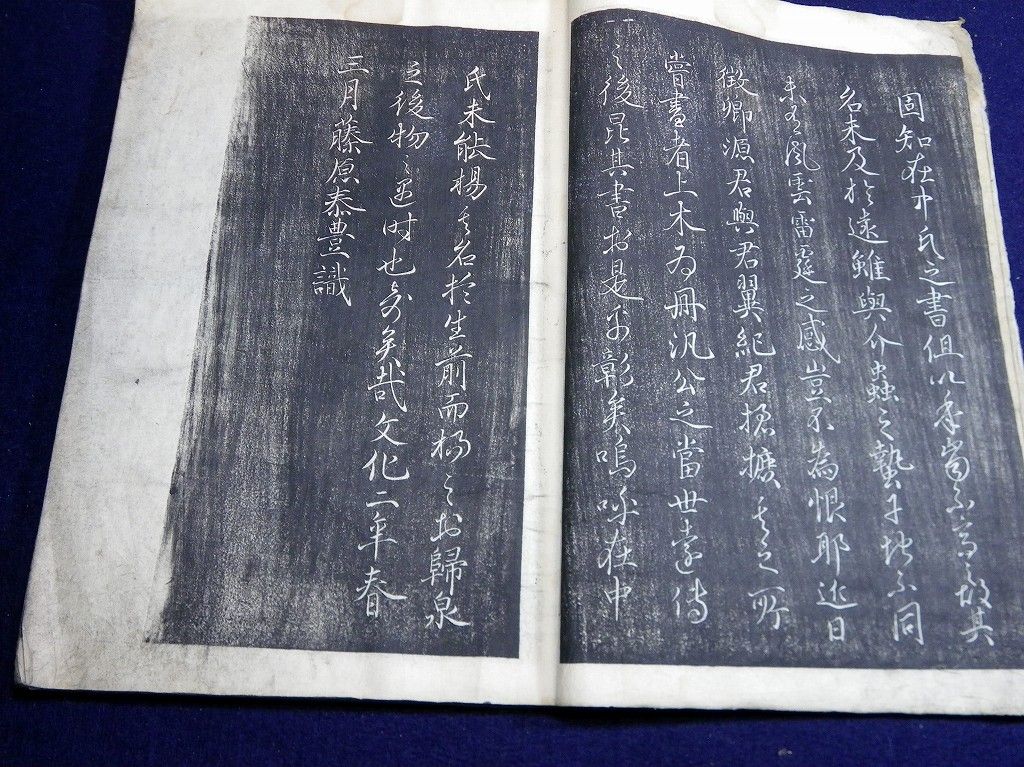 固知在中氏之書但以年尚不高故其
名未及於遠雖與介蟲之蟄于地不同
未有風雲雷霆之感豈不為恨耶近日
徴卿源君與君翼紀君摭其之所
嘗書者上木為冊汎公之當世遠傳
之後昆其書於是乎彰矣嗚呼在中
氏未能揚其名於生前而揚之於歸泉
之後物之遇时也命矣哉文化二年春
三月藤原泰豊識